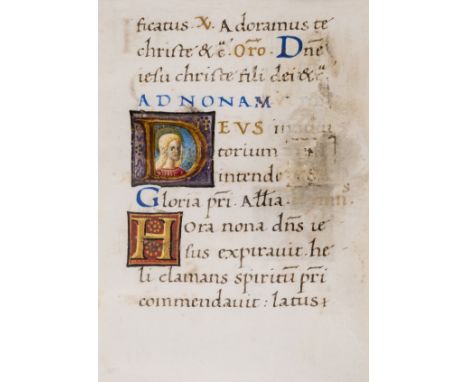 ficatus. V. Adoramus te
christe & c̄. Oro. Dn̄e
iesu christe fili dei & c̄.
AD NONAM
DEUS in
torium
intende
Gloria pri. All'ia.
Hora nona dn̄s ie
sus expirauit. he
li clamans spiritū pri
commendauit: latus